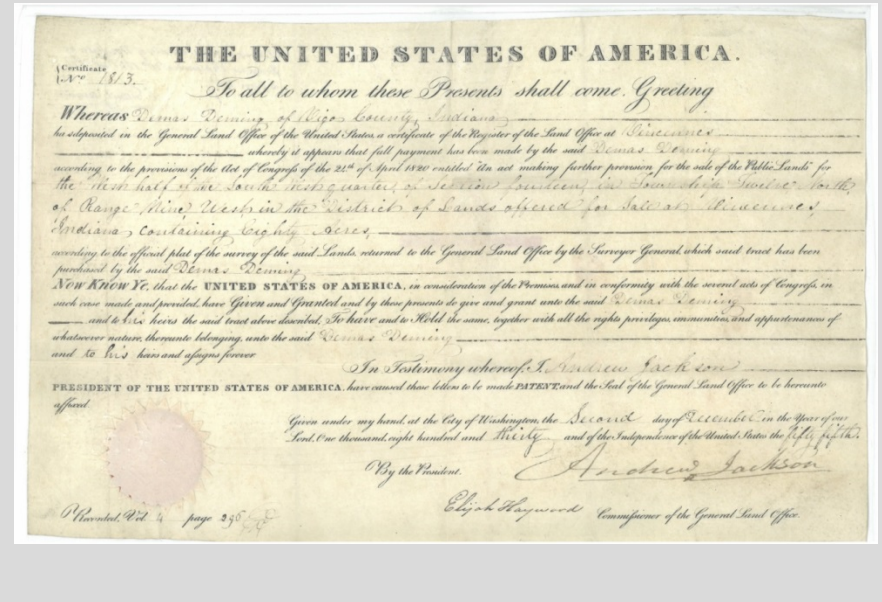 THE UNITED STATES OF AMERICA.
Certificate
No. 1813.
To all to whom these Presents shall come, Greeting
Whereas Demas Deming, of Vigo County, Indiana
has deposited in the General Land Office of the United States, a certificate of the Register of the Land Office at Vincennes
whereby it appears that full payment has been made by the said Demas Deming
according to the provisions of the Act of Congress of the 24th of April 1820 entitled "An act making further provision for the sale of the Public Lands" for
the West half of the South West quarter, of Section fourteen, in Township Twelve North,
of Range Nine, West in the District of Lands offered for Sale at Vincennes,
Indiana, containing Eighty Acres,
according to the official plat of the survey of the said Lands, returned to the General Land Office by the Surveyor General, which said tract has been
purchased by the said Demas Deming
Now Know Ye, that the UNITED STATES OF AMERICA, in consideration of the Premises, and in conformity with the several acts of Congress, in
such case made and provided, have Given and Granted and by these presents do give and grant unto the said Demas Deming
and to his heirs the said tract above described; To have and to Hold the same, together with all the rights privileges, immunities, and appurtenances of
whatsoever nature, thereunto belonging, unto the said Demas Deming
and to his heirs and assigns forever
In Testimony whereof, I, Andrew Jackson
PRESIDENT OF THE UNITED STATES OF AMERICA, have caused these letters to be made PATENT, and the Seal of the General Land Office to be hereunto
affixed.
Given under my hand, at the City of Washington, the Second day of December in the Year of our
Lord, One thousand, eight hundred and thirty and of the Independence of the United States the fifty fifth.
By the President.
Andrew Jackson
Elijah Hayward Commissioner of the General Land Office.
Recorded, Vol 4 page